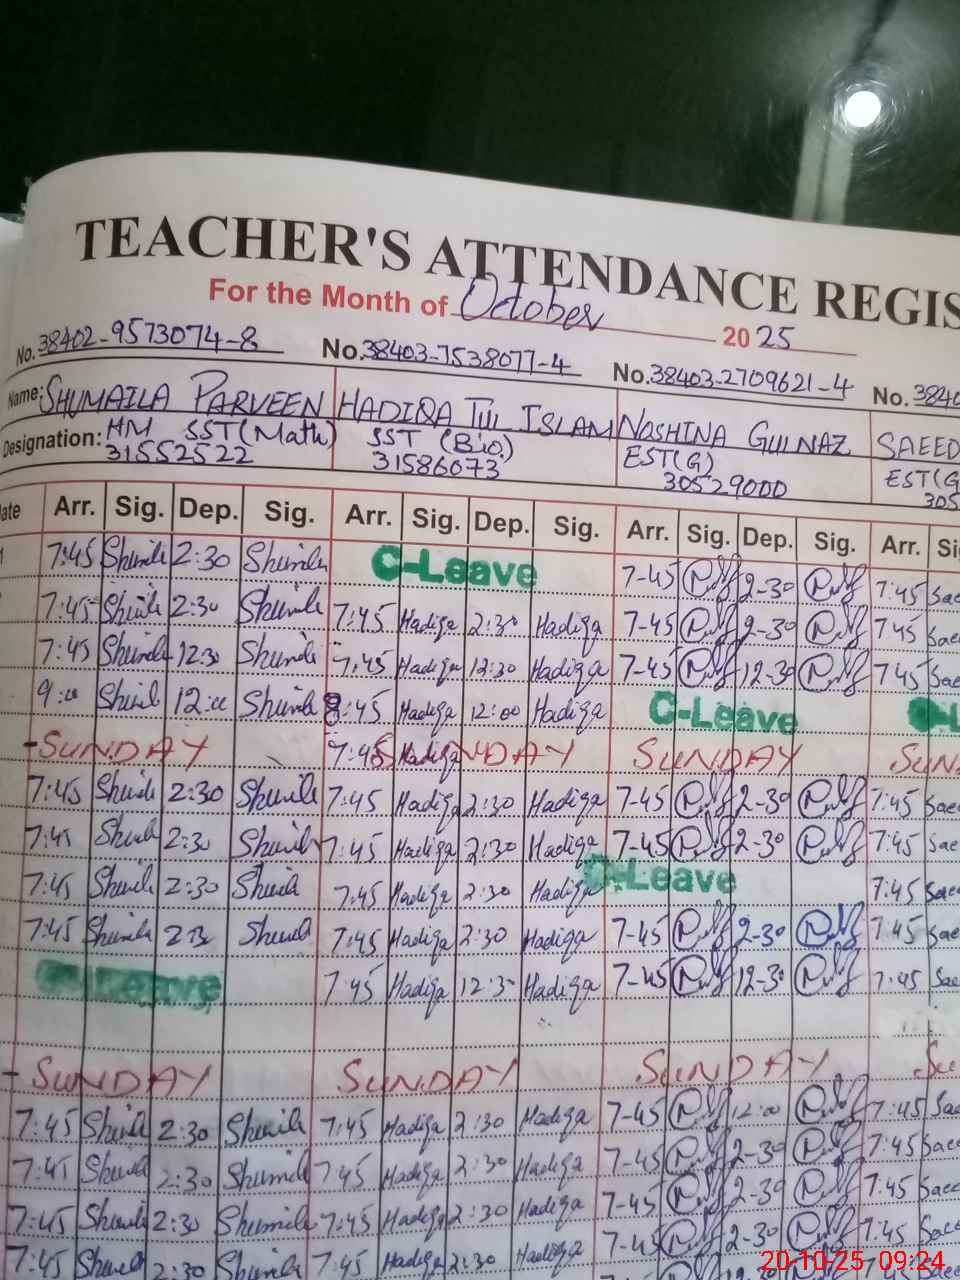 TEACHER'S ATTENDANCE REGIS
For the Month of October 2025
No. 38402-9573074-8 No. 38403-7538077-4 No. 38403-2709621-4 No. 3840
Name: SHUMAILA PARVEEN HADIQA TUL ISLAM NOSHINA GULNAZ SAEED
Designation: HM SST(Math) SST (Bio) EST(G) EST(G
31552522 31586073 30529000 305
ate Arr. Sig. Dep. Sig. Arr. Sig. Dep. Sig. Arr. Sig. Dep. Sig. Arr. Si
1 7:45 2:30 C-Leave 7-45 2-30 7:45 Sae
7:45 2:30 7:45 Hadiqa 2:30 Hadiqa 7-45 2-30 7:45 Sae
7:45 12:30 7:45 Hadiqa 12:30 Hadiqa 7-45 12-30 7:45 Sae
9:00 12:00 8:45 Hadiqa 12:00 Hadiqa C-Leave
SUNDAY 7:45 Hadiqa SUNDAY SUNDAY SUN
7:45 2:30 7:45 Hadiqa 2:30 Hadiqa 7-45 2-30 7:45 Sae
7:45 2:30 7:45 Hadiqa 2:30 Hadiqa 7-45 2-30 7:45 Sae
7:45 2:30 7:45 Hadiqa 2:30 Hadiqa C-Leave 7:45 Sae
7:45 2:30 7:45 Hadiqa 2:30 Hadiqa 7-45 2-30 7:45 Sae
C-Leave 7:45 Hadiqa 12:30 Hadiqa 7-45 12-30 7:45 Sae
SUNDAY SUNDAY SUNDAY Su
7:45 2:30 7:45 Hadiqa 2:30 Hadiqa 7-45 12:00 7:45 Sae
7:45 2:30 7:45 Hadiqa 2:30 Hadiqa 7-45 2-30 7:45 Sae
7:45 2:30 7:45 Hadiqa 2:30 Hadiqa 7-45 2-30 7:45 Sae
7:45 2:30 7:45 Hadiqa 2:30 Hadiqa 7-45 2-30 7:45 Sae
20-10-25 09:24